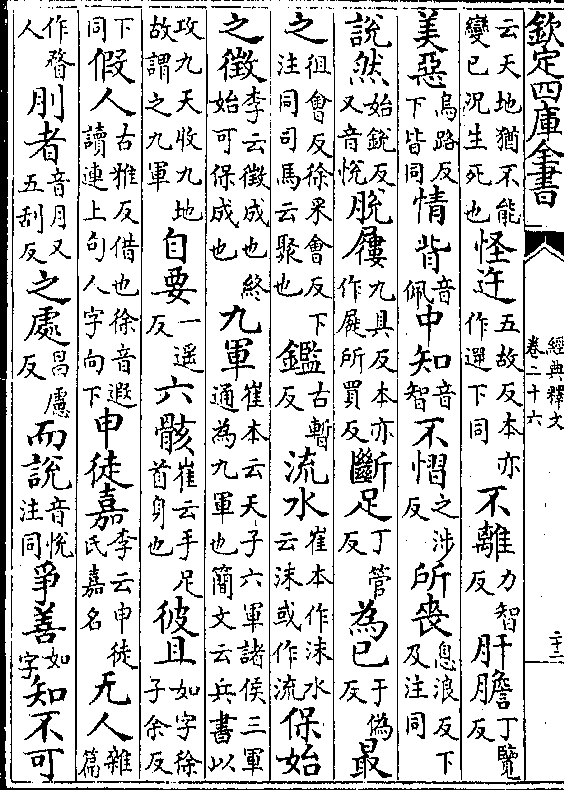 欽定四庫全書
經典釋文
卷二十六
二十二
云天地猶不能變已況生死也怪迕五故反本亦作遌下同不離力智反肝膽丁覽反
美惡烏路反下皆同情背音佩中知音智不慴之涉反所喪息浪反下及注同
說然始銳反又音悅脫屨九具反本亦作屣所買反斷足丁管反為已于偽反最
之徂會反徐采會反下注同司馬云聚也鑑古暫反流水崔本作沬水云沬或作流保始
之徵李云徵成也終始可保成也九軍崔本云天子六軍諸侯三軍通為九軍也簡文云兵書以
攻九天收九地故謂之九軍自要一遥反六骸崔云手足首身也彼且如字徐子余反
下同假人古雅反借也徐音遐讀連上句人字向下申徒嘉李云申徒氏嘉名无人雜篇
作瞀人刖者音月又五刮反之處昌慮反而說音悅注同爭善如字知不可